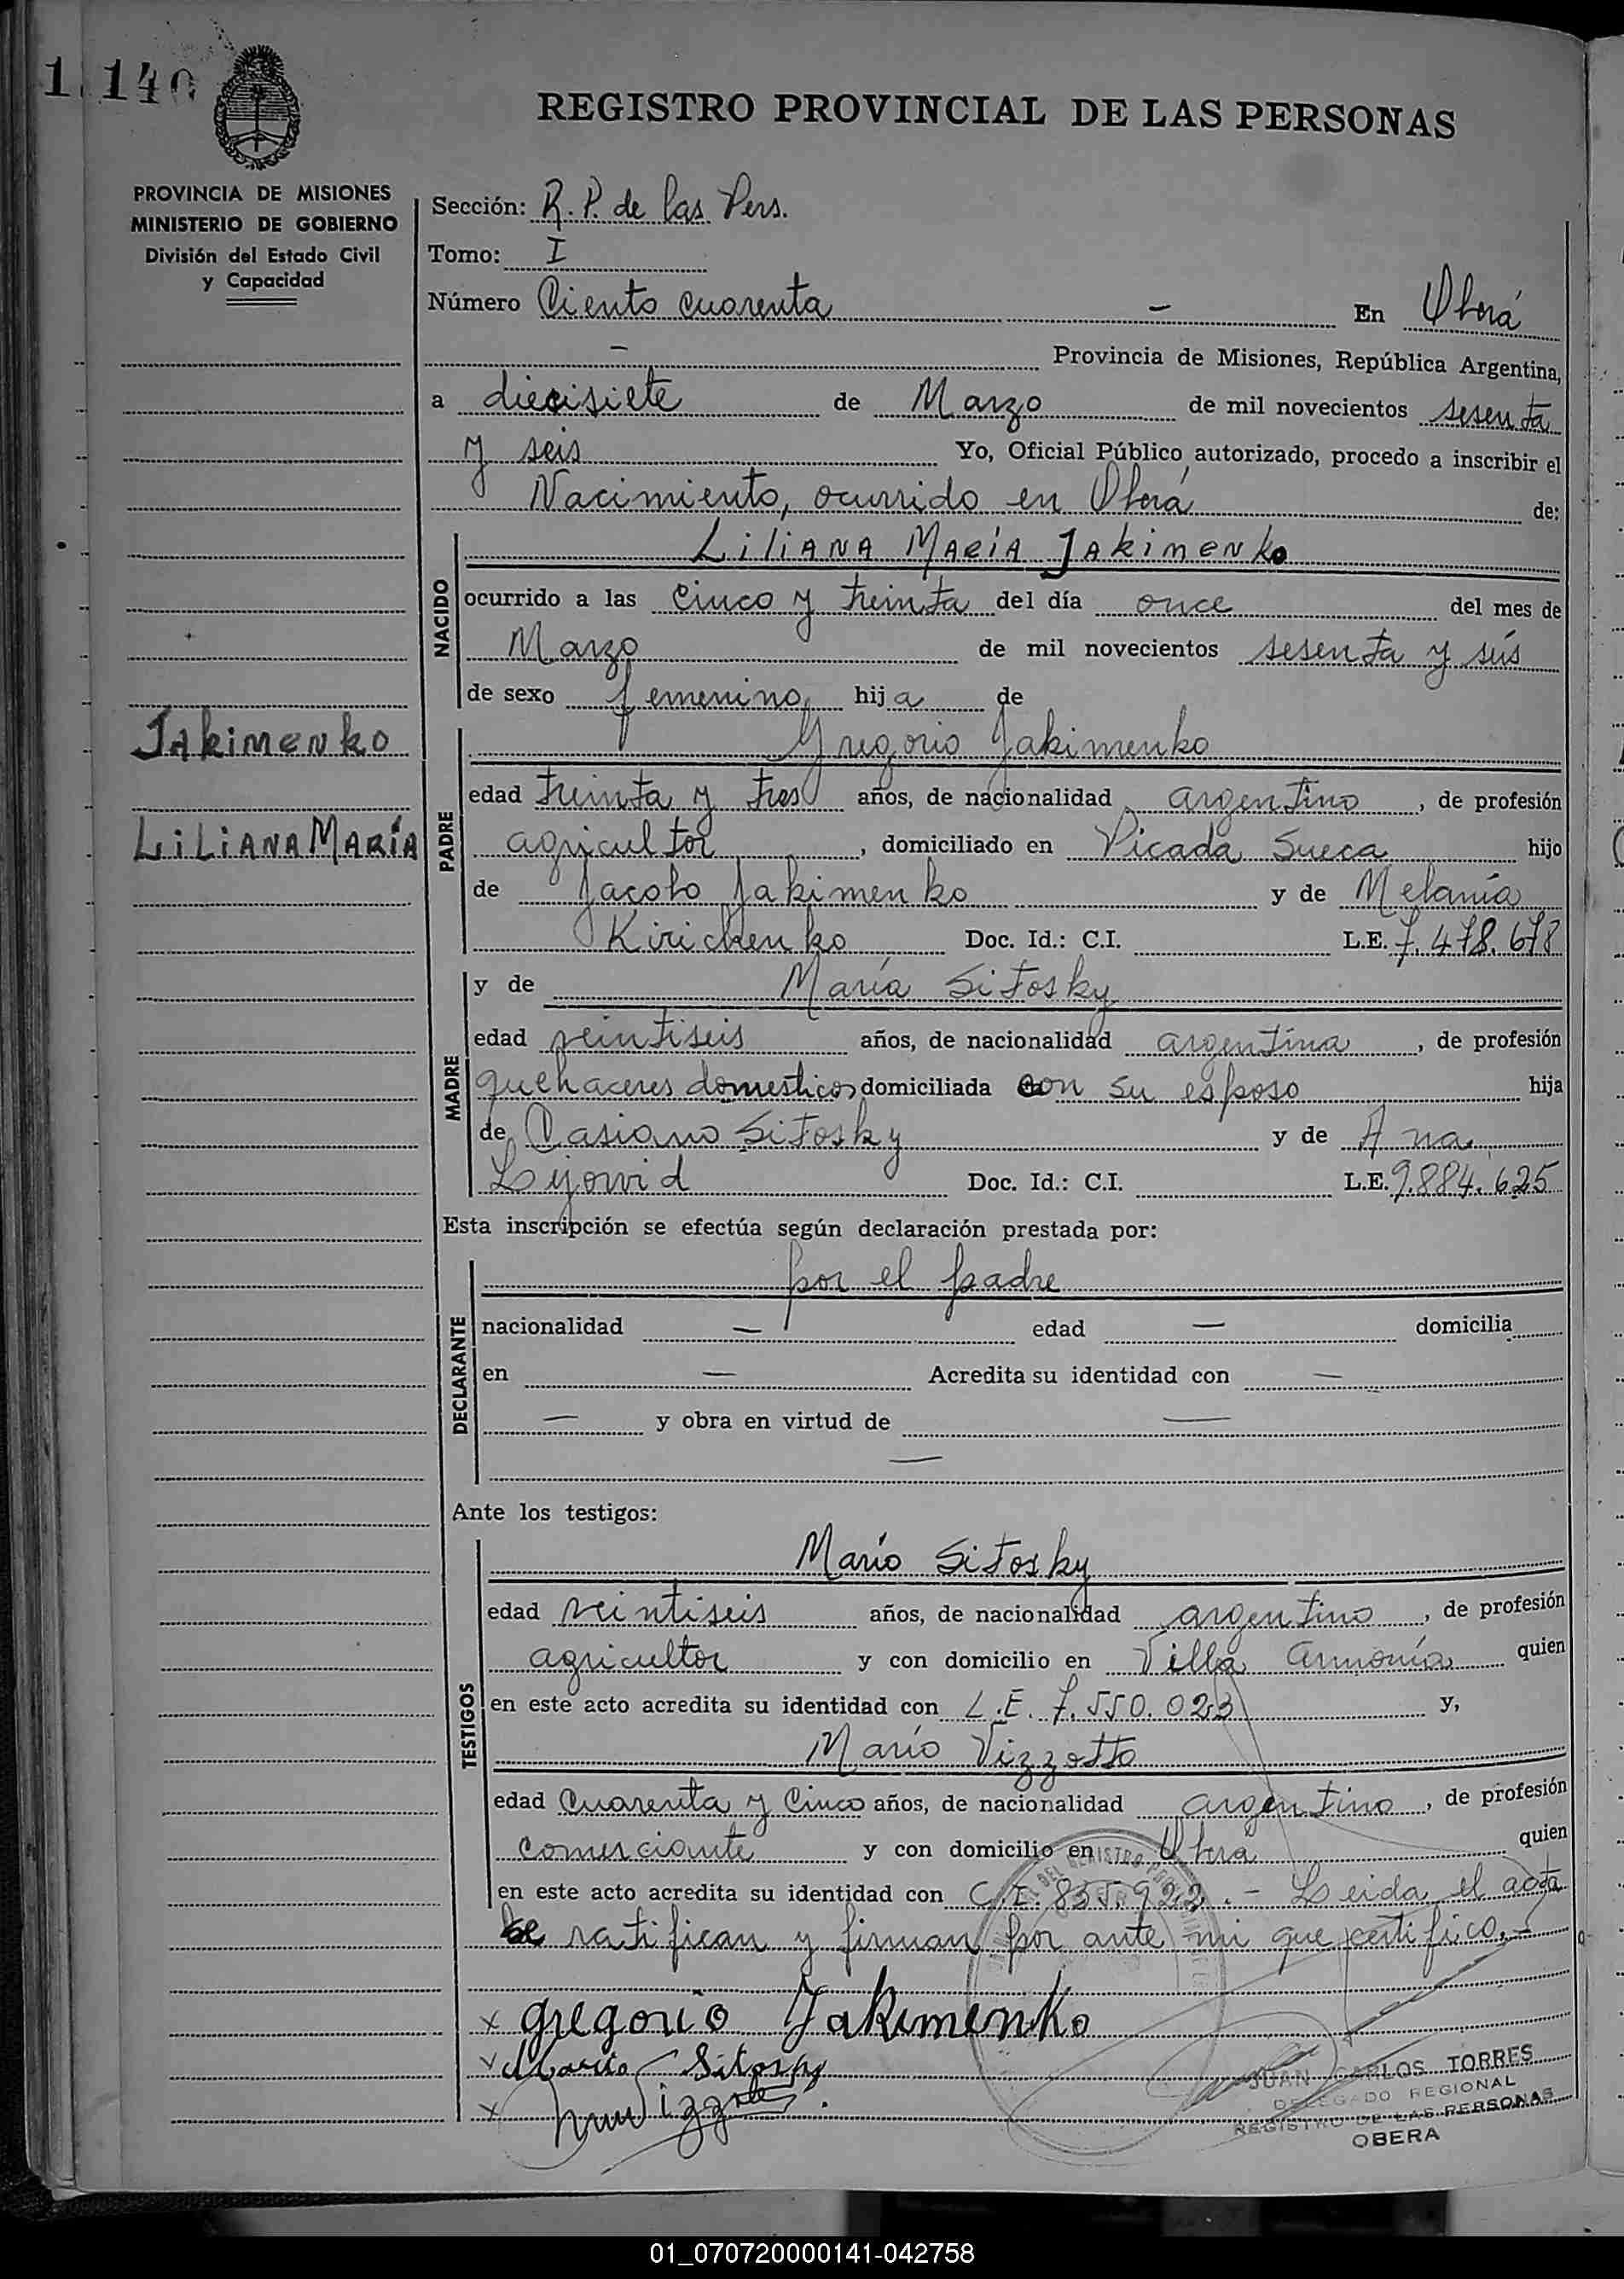 1 140
REGISTRO PROVINCIAL DE LAS PERSONAS
PROVINCIA DE MISIONES
MINISTERIO DE GOBIERNO
División del Estado Civil
y Capacidad
Sección: R. P. de las Pers.
Tomo: I
Número Ciento cuarenta — En Oberá
— Provincia de Misiones, República Argentina,
a diecisiete de Marzo de mil novecientos sesenta
y seis Yo, Oficial Público autorizado, procedo a inscribir el
Nacimiento, ocurrido en Oberá de:
NACIDO
LiliANA MARÍA JAkimenko
ocurrido a las cinco y treinta del día once del mes de
Marzo de mil novecientos sesenta y seis
de sexo femenino hija de
Jakimenko
LiLiANA MARÍA
PADRE
Gregorio Jakimenko
edad treinta y tres años, de nacionalidad argentino, de profesión
agricultor, domiciliado en Picada Sueca hijo
de Jacobo Jakimenko y de Melania
Kirichenko Doc. Id.: C.I. L.E. 7.478.678
MADRE
y de María Sitosky
edad veintiseis años, de nacionalidad argentina, de profesión
quehaceres domesticos domiciliada con su esposo hija
de Casiano Sitosky y de Ana
Doc. Id.: C.I. L.E. 9.884.625
Esta inscripción se efectúa según declaración prestada por:
DECLARANTE
por el padre
nacionalidad — edad — domicilia
en — Acredita su identidad con —
— y obra en virtud de —
—
Ante los testigos:
TESTIGOS
Mario Sitosky
edad veintiseis años, de nacionalidad argentino, de profesión
agricultor y con domicilio en Villa Armonía quien
en este acto acredita su identidad con L.E. 7.550.023 y,
Mario Vizzotto
edad cuarenta y cinco años, de nacionalidad argentino, de profesión
comerciante y con domicilio en Oberá quien
en este acto acredita su identidad con C.I. 835.922.- Leida el acta
se ratifican y firman por ante mi que certifico.-
x gregorio Jakimenko
x Mario Sitosky
x
JUAN CARLOS TORRES
DELEGADO REGIONAL
REGISTRO DE LAS PERSONAS
OBERA
01_070720000141-042758